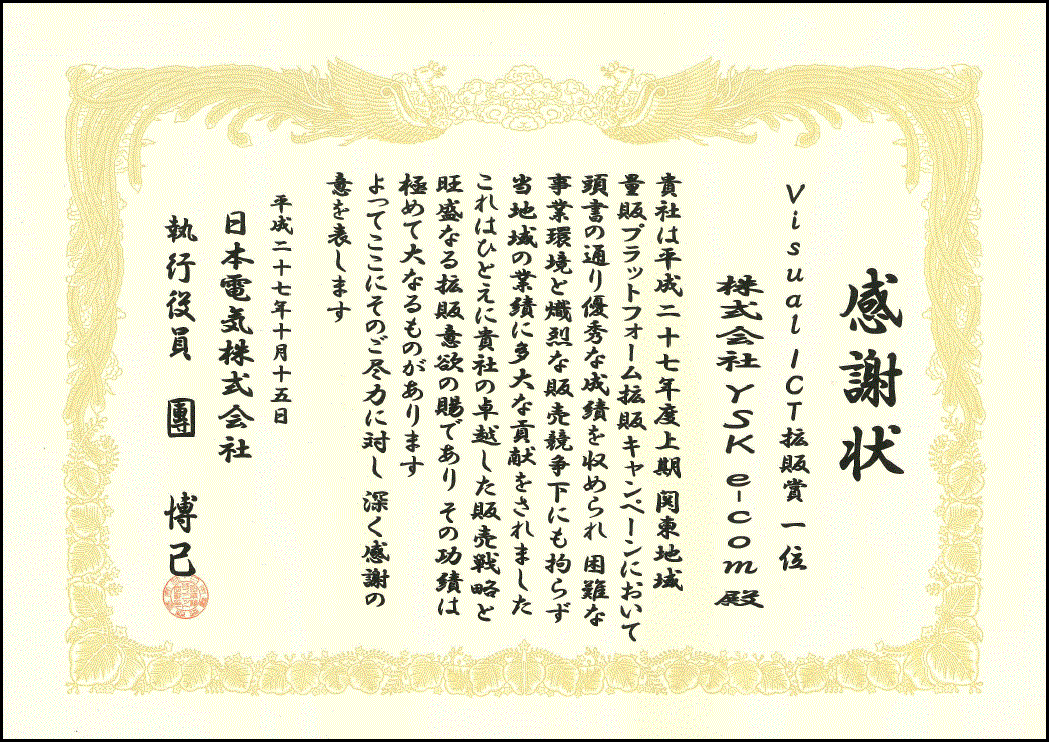 感謝状
Visual ICT拡販賞 一位
株式会社 YSK e-com 殿
貴社は平成二十七年度上期 関東地域
量販プラットフォーム拡販キャンペーンにおいて
頭書の通り優秀な成績を収められ 困難な
事業環境と熾烈な販売競争下にも拘らず
当地域の業績に多大な貢献をされました
これはひとえに貴社の卓越した販売戦略と
旺盛なる拡販意欲の賜であり その功績は
極めて大なるものがあります
よってここにそのご尽力に対し 深く感謝の
意を表します
平成二十七年十月十五日
日本電気株式会社
執行役員 團 博己